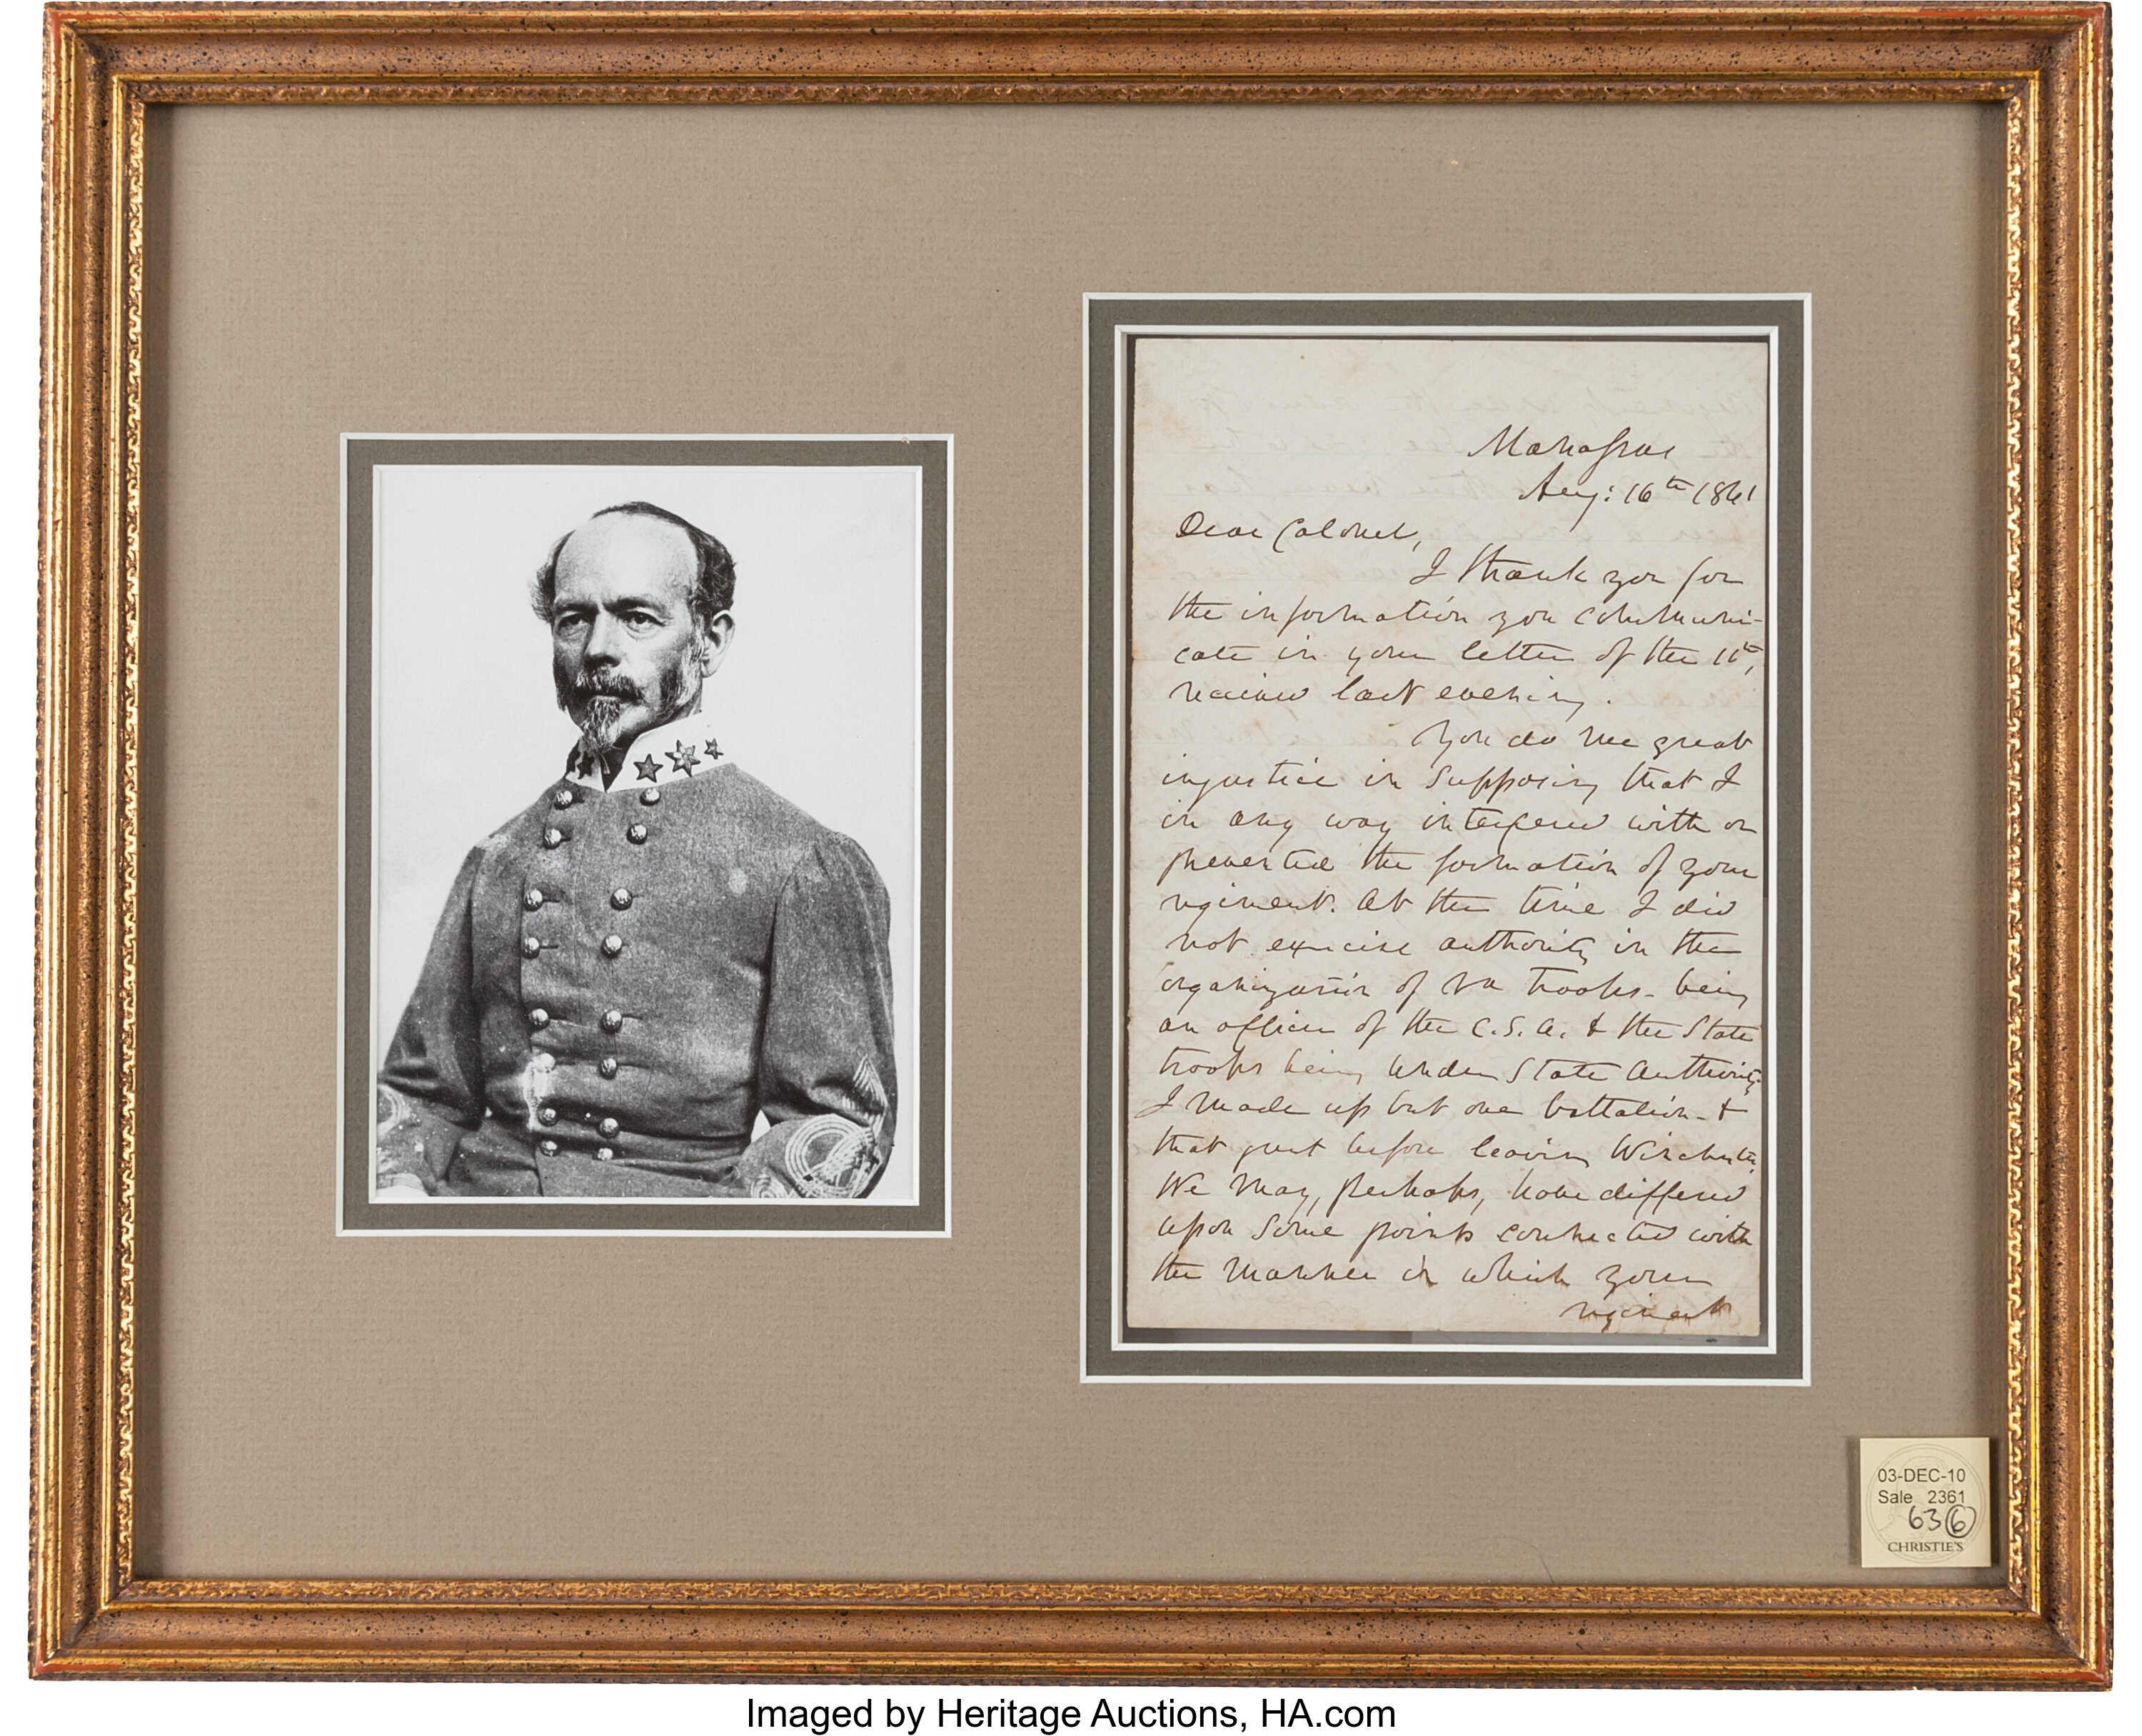 Manassas
Aug: 16th 1861
Dear Colonel,
I thank you for
the information you communi-
cate in your letter of the 11th,
received last evening.
You do me great
injustice in supposing that I
in any way interfered with or
prevented the formation of your
regiment. At the time I did
not exercise authority in the
organization of Va troops - being
an officer of the C.S.A. & the State
troops being under State Authority.
I made up but one battalion - &
that just before leaving Winchester.
We may, perhaps, have differed
upon some points connected with
the manner in which your
regiment
03-DEC-10
Sale 2361
63 6
CHRISTIE'S
Imaged by Heritage Auctions, HA.com